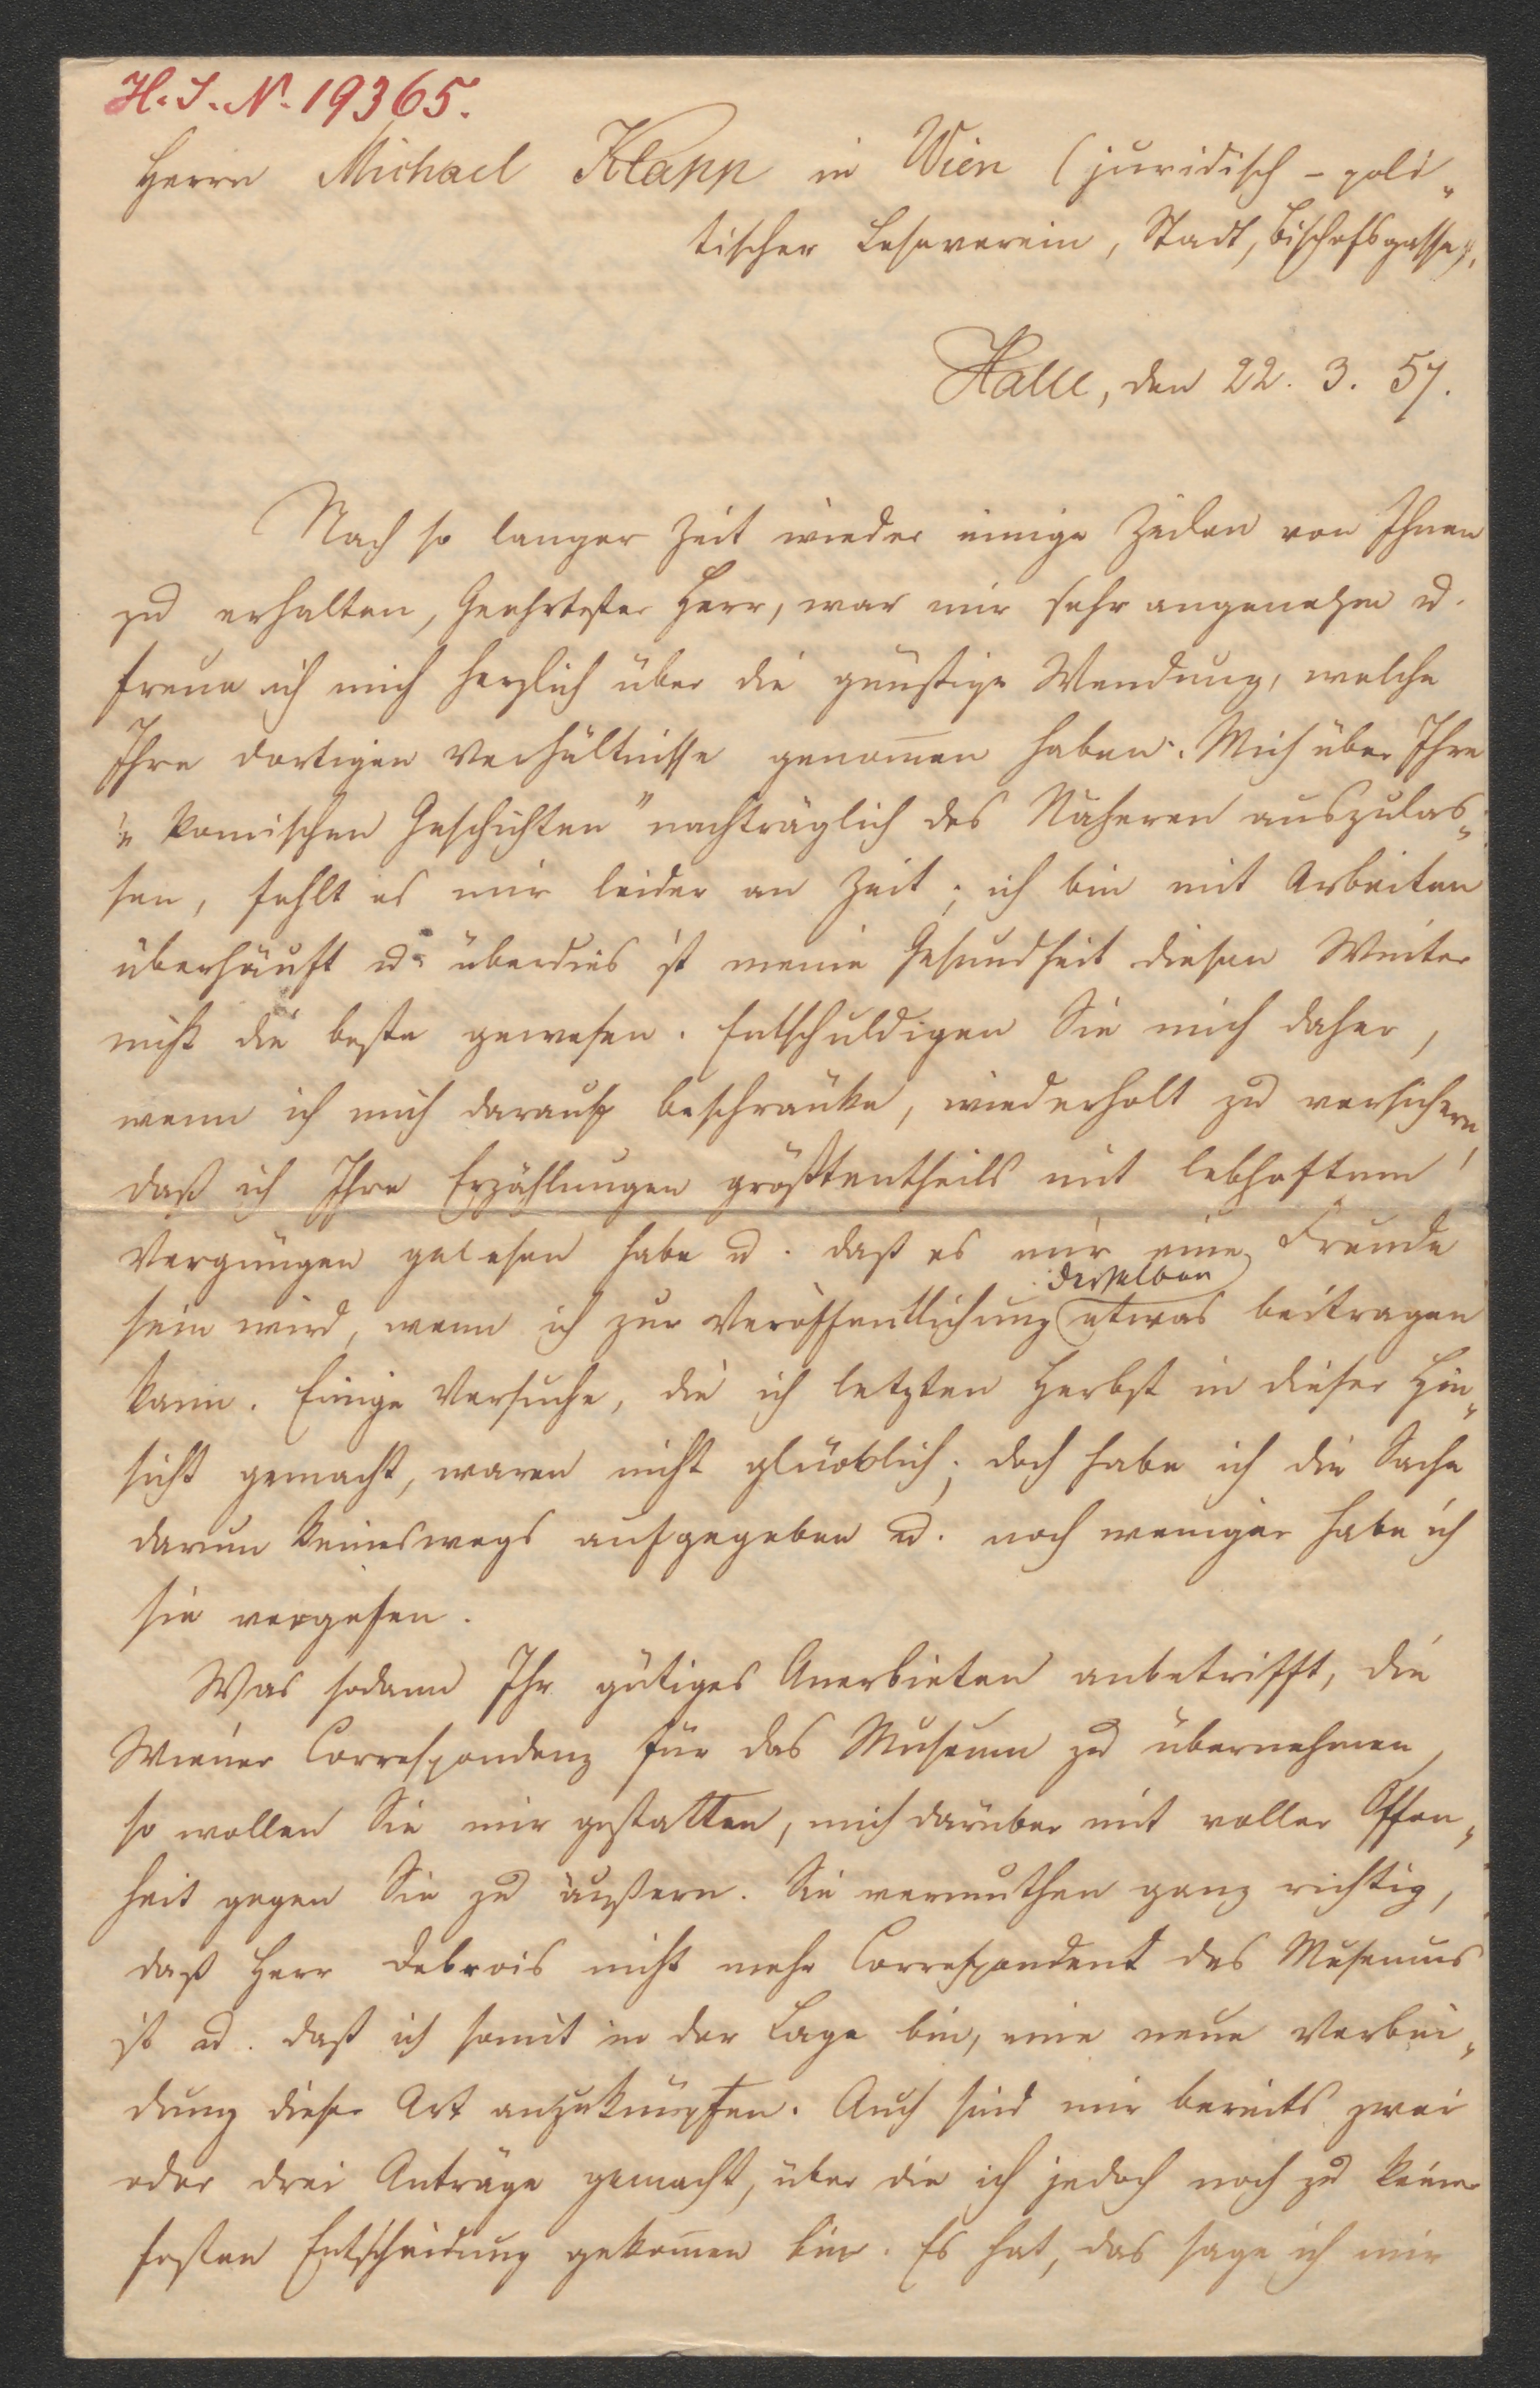 H. I. N. 19365.
Herrn Michael Klapp in Wien (juridisch-poli„
tischer Leseverein, Stadt, Bischofsgasse).
Halle, den 22. 3. 57.
Nach so langer Zeit wieder einige Zeilen von Ihnen
zu erhalten, Geehrtester Herr, war mir sehr angenehm u.
freue ich mich herzlich über die günstige Wendung, welche
Ihre dortigen Verhältnisse genom̅en haben. Mich über Ihre
„komischen Geschichten" nachträglich des Näheren auszulas„
sen, fehlt es mir leider an Zeit; ich bin mit Arbeiten
überhäuft u. überdies ist meine Gesundheit diesen Winter
nicht die beste gewesen. Entschuldigen Sie mich daher,
wenn ich mich darauf beschränke, wiederholt zu versichern,
daß ich Ihre Erzählungen größtentheils mit lebhaftem
Vergnügen gelesen habe u. daß es mir eine Freude
derselben
sein wird, wenn ich zur Veröffentlichung etwas beitragen
kann. Einige Versuche, die ich letzten Herbst in dieser Hin„
sicht gemacht, waren nicht glücklich; doch habe ich die Sache
darum keineswegs aufgegeben u. noch weniger habe ich
sie vergessen.
Was sodann Ihr gütiges Anerbieten anbetrifft, die
Wiener Correspondenz für das Museum zu übernehmen,
so wollen Sie mir gestatten, mich darüber mit voller Offen„
heit gegen Sie zu äußern. Sie vermuthen ganz richtig,
daß Herr Debrois nicht mehr Correspondent des Museums
ist u. daß ich somit in der Lage bin, eine neue Verbin„
dung dieser Art anzuknüpfen. Auch sind mir bereits zwei
oder drei Anträge gemacht, über die ich jedoch noch zu keiner
festen Entscheidung gekom̅en bin. Es hat, das sage ich mir